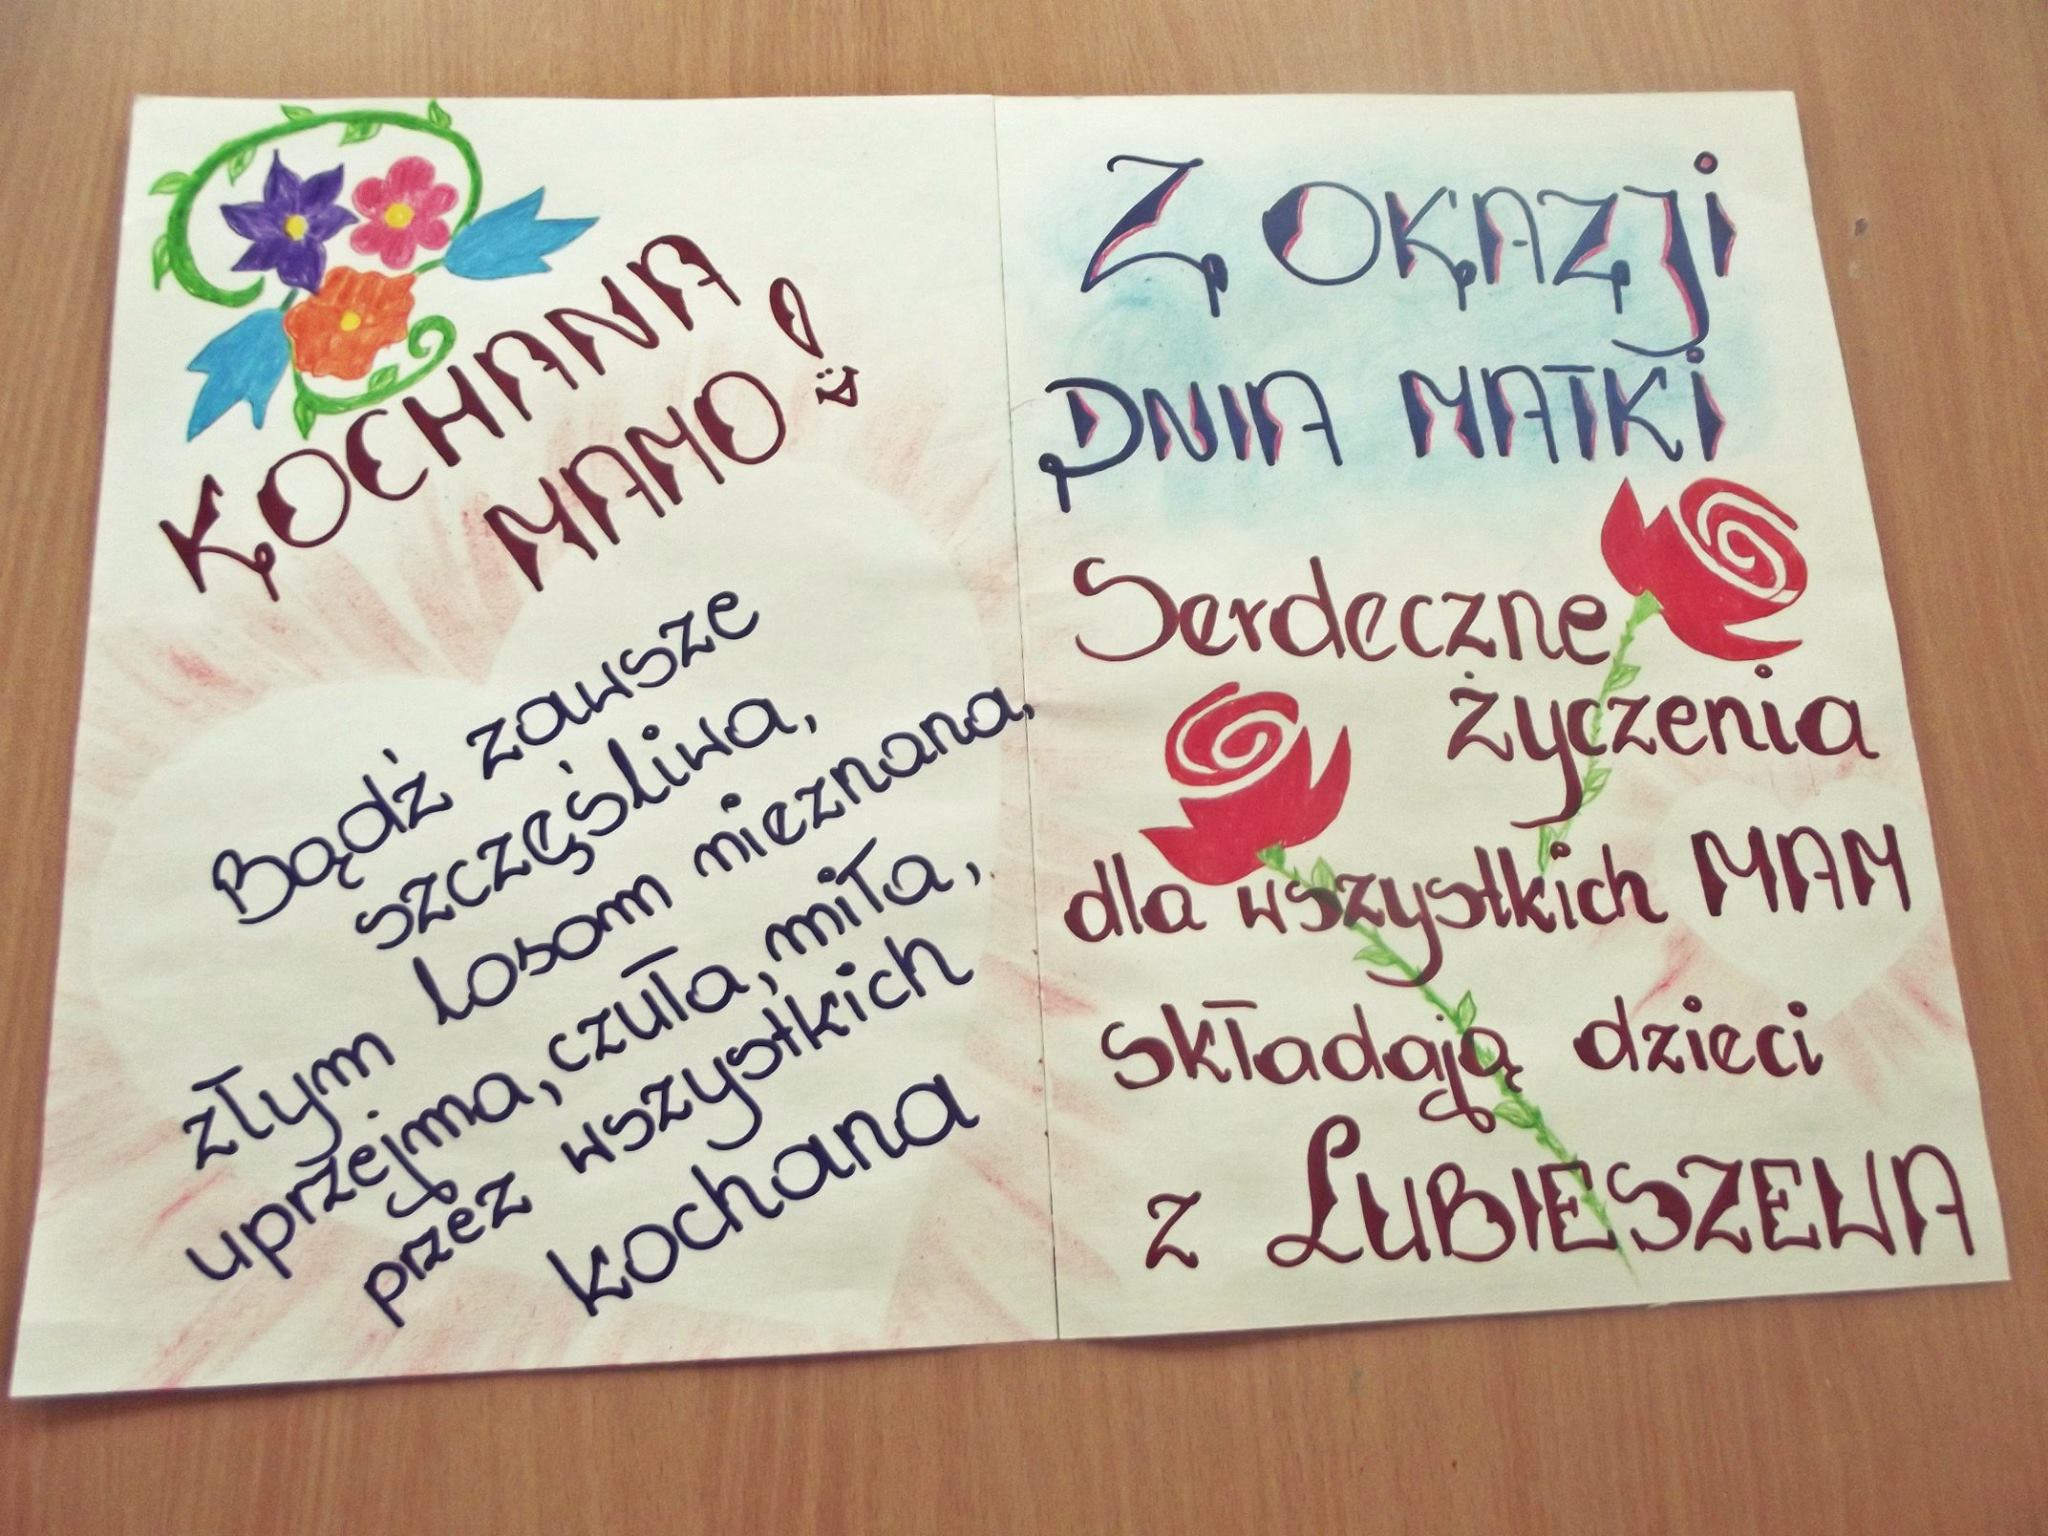 KOCHANA
MAMO!
Bądź zawsze
szczęśliwa,
złym losom nieznana,
uprzejma, czuła, miła,
przez wszystkich
kochana
Z OKAZJi
DNIA MATKi
Serdeczne
życzenia
dla wszystkich MAM
składają dzieci
z LUBIESZEWA